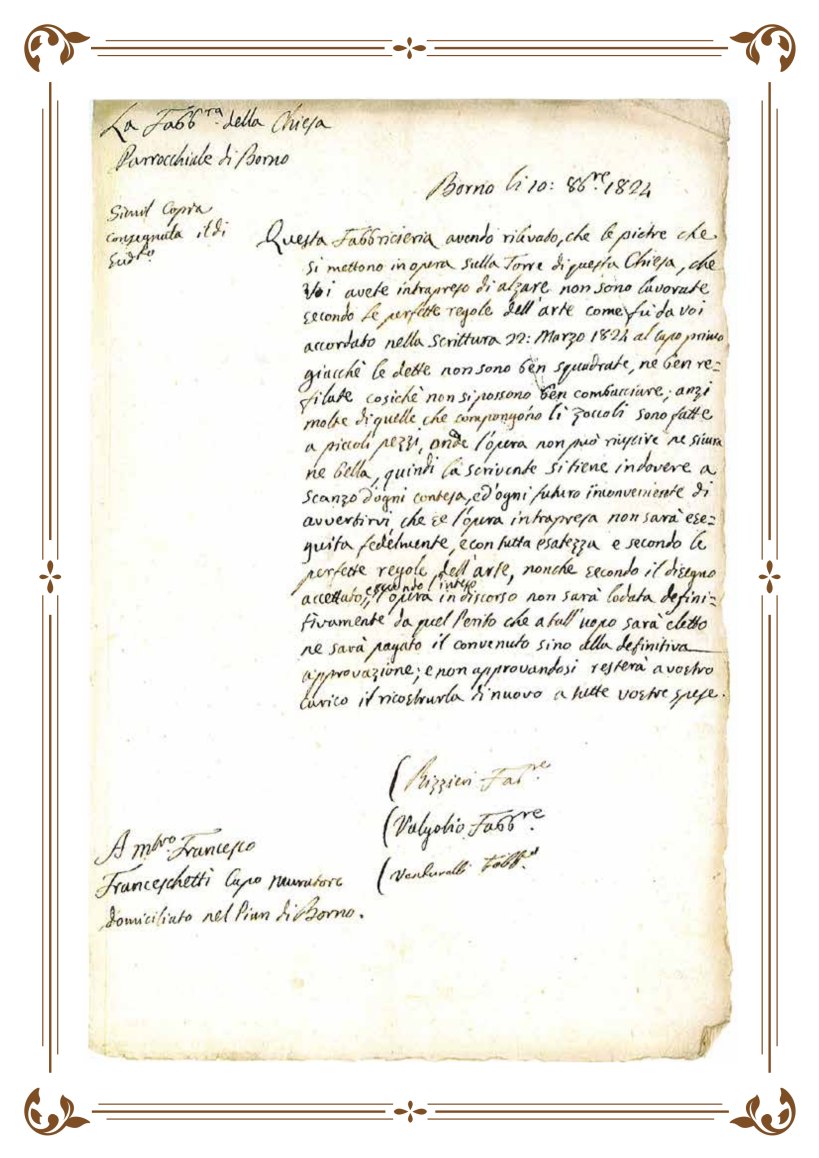 La Fabb.ra della Chiesa
Parrocchiale di Borno
Borno li 10: 8bre. 1824
Simil Copia
consegnata il di
Sud.to
Questa Fabbricieria avendo rilevato, che le pietre che
si mettono in opera sulla Torre di questa Chiesa, che
Voi avete intrapreso di alzare non sono lavorate
secondo le perfette regole dell'arte come fù da voi
accordato nella Scrittura 22: Marzo 1824 al capo primo
giacchè le dette non sono ben squadrate, ne ben re=
filate cosichè non si possono ben combacciare; anzi
molte di quelle che compongono li zoccoli sono fatte
a piccoli pezzi, onde l'opera non può riuscire ne sicura
ne bella, quindi la scrivente si tiene in dovere a
scanzo d'ogni contesa, ed'ogni futuro inconveniente di
avvertirvi che se l'opera intrapresa non sarà ese=
guita fedelmente, e con tutta esatezza e secondo le
perfette regole dell'arte, nonchè secondo il disegno
accettato, essendo l'inteso
l'opera in discorso non sarà lodata defini=
tivamente da quel Perito che a tall'uopo sarà eletto
ne sarà pagato il convenuto sino alla definitiva
approvazione; e non approvandosi resterà a vostro
carico il ricostrurla di nuovo a tutte vostre spese.
(Rizzieri Fab.re
(Valgolio Fabb.re
( Fabb.re
A m.tro Francesco
Franceschetti Capo muratore
domiciliato nel Pian di Borno.